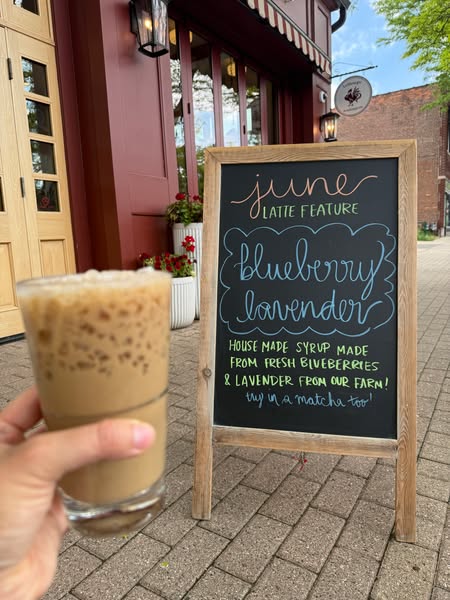 june
LATTE FEATURE
blueberry
lavender
HOUSE MADE SYRUP MADE
FROM FRESH BLUEBERRIES
& LAVENDER FROM OUR FARM!
try in a matcha too!